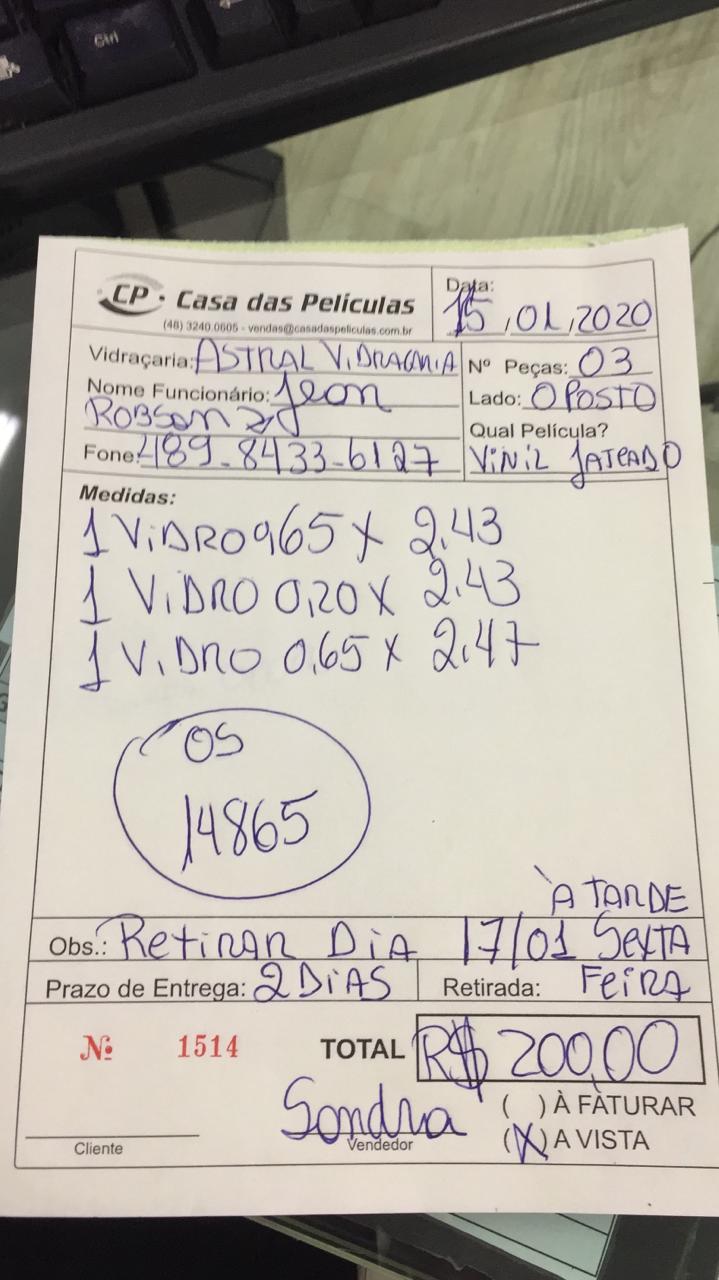 Ctrl
CP. Casa das Películas
(48) 3240.0605 - vendas@casadaspeliculas.com.br
Data:
15,01,2020
Vidraçaria: ASTRAL VIDRAÇARIA
Nº Peças: 03
Nome Funcionário: Jean
ROBSON
Lado: OPOSTO
Fone: 489-8433-6127
Qual Película?
VINIL JATEADO
Medidas:
1 VIDRO 0,65 X 2.43
1 VIDRO 0,20 X 2.43
1 VIDRO 0,65 X 2.47
OS
14865
À TARDE
Obs.: Retirar DIA 17/01 SEXTA
Prazo de Entrega: 2 DIAS
Retirada: FEIRA
Nº 1514
TOTAL R$ 200,00
Sondra
( ) À FATURAR
Cliente
Vendedor
(X) A VISTA